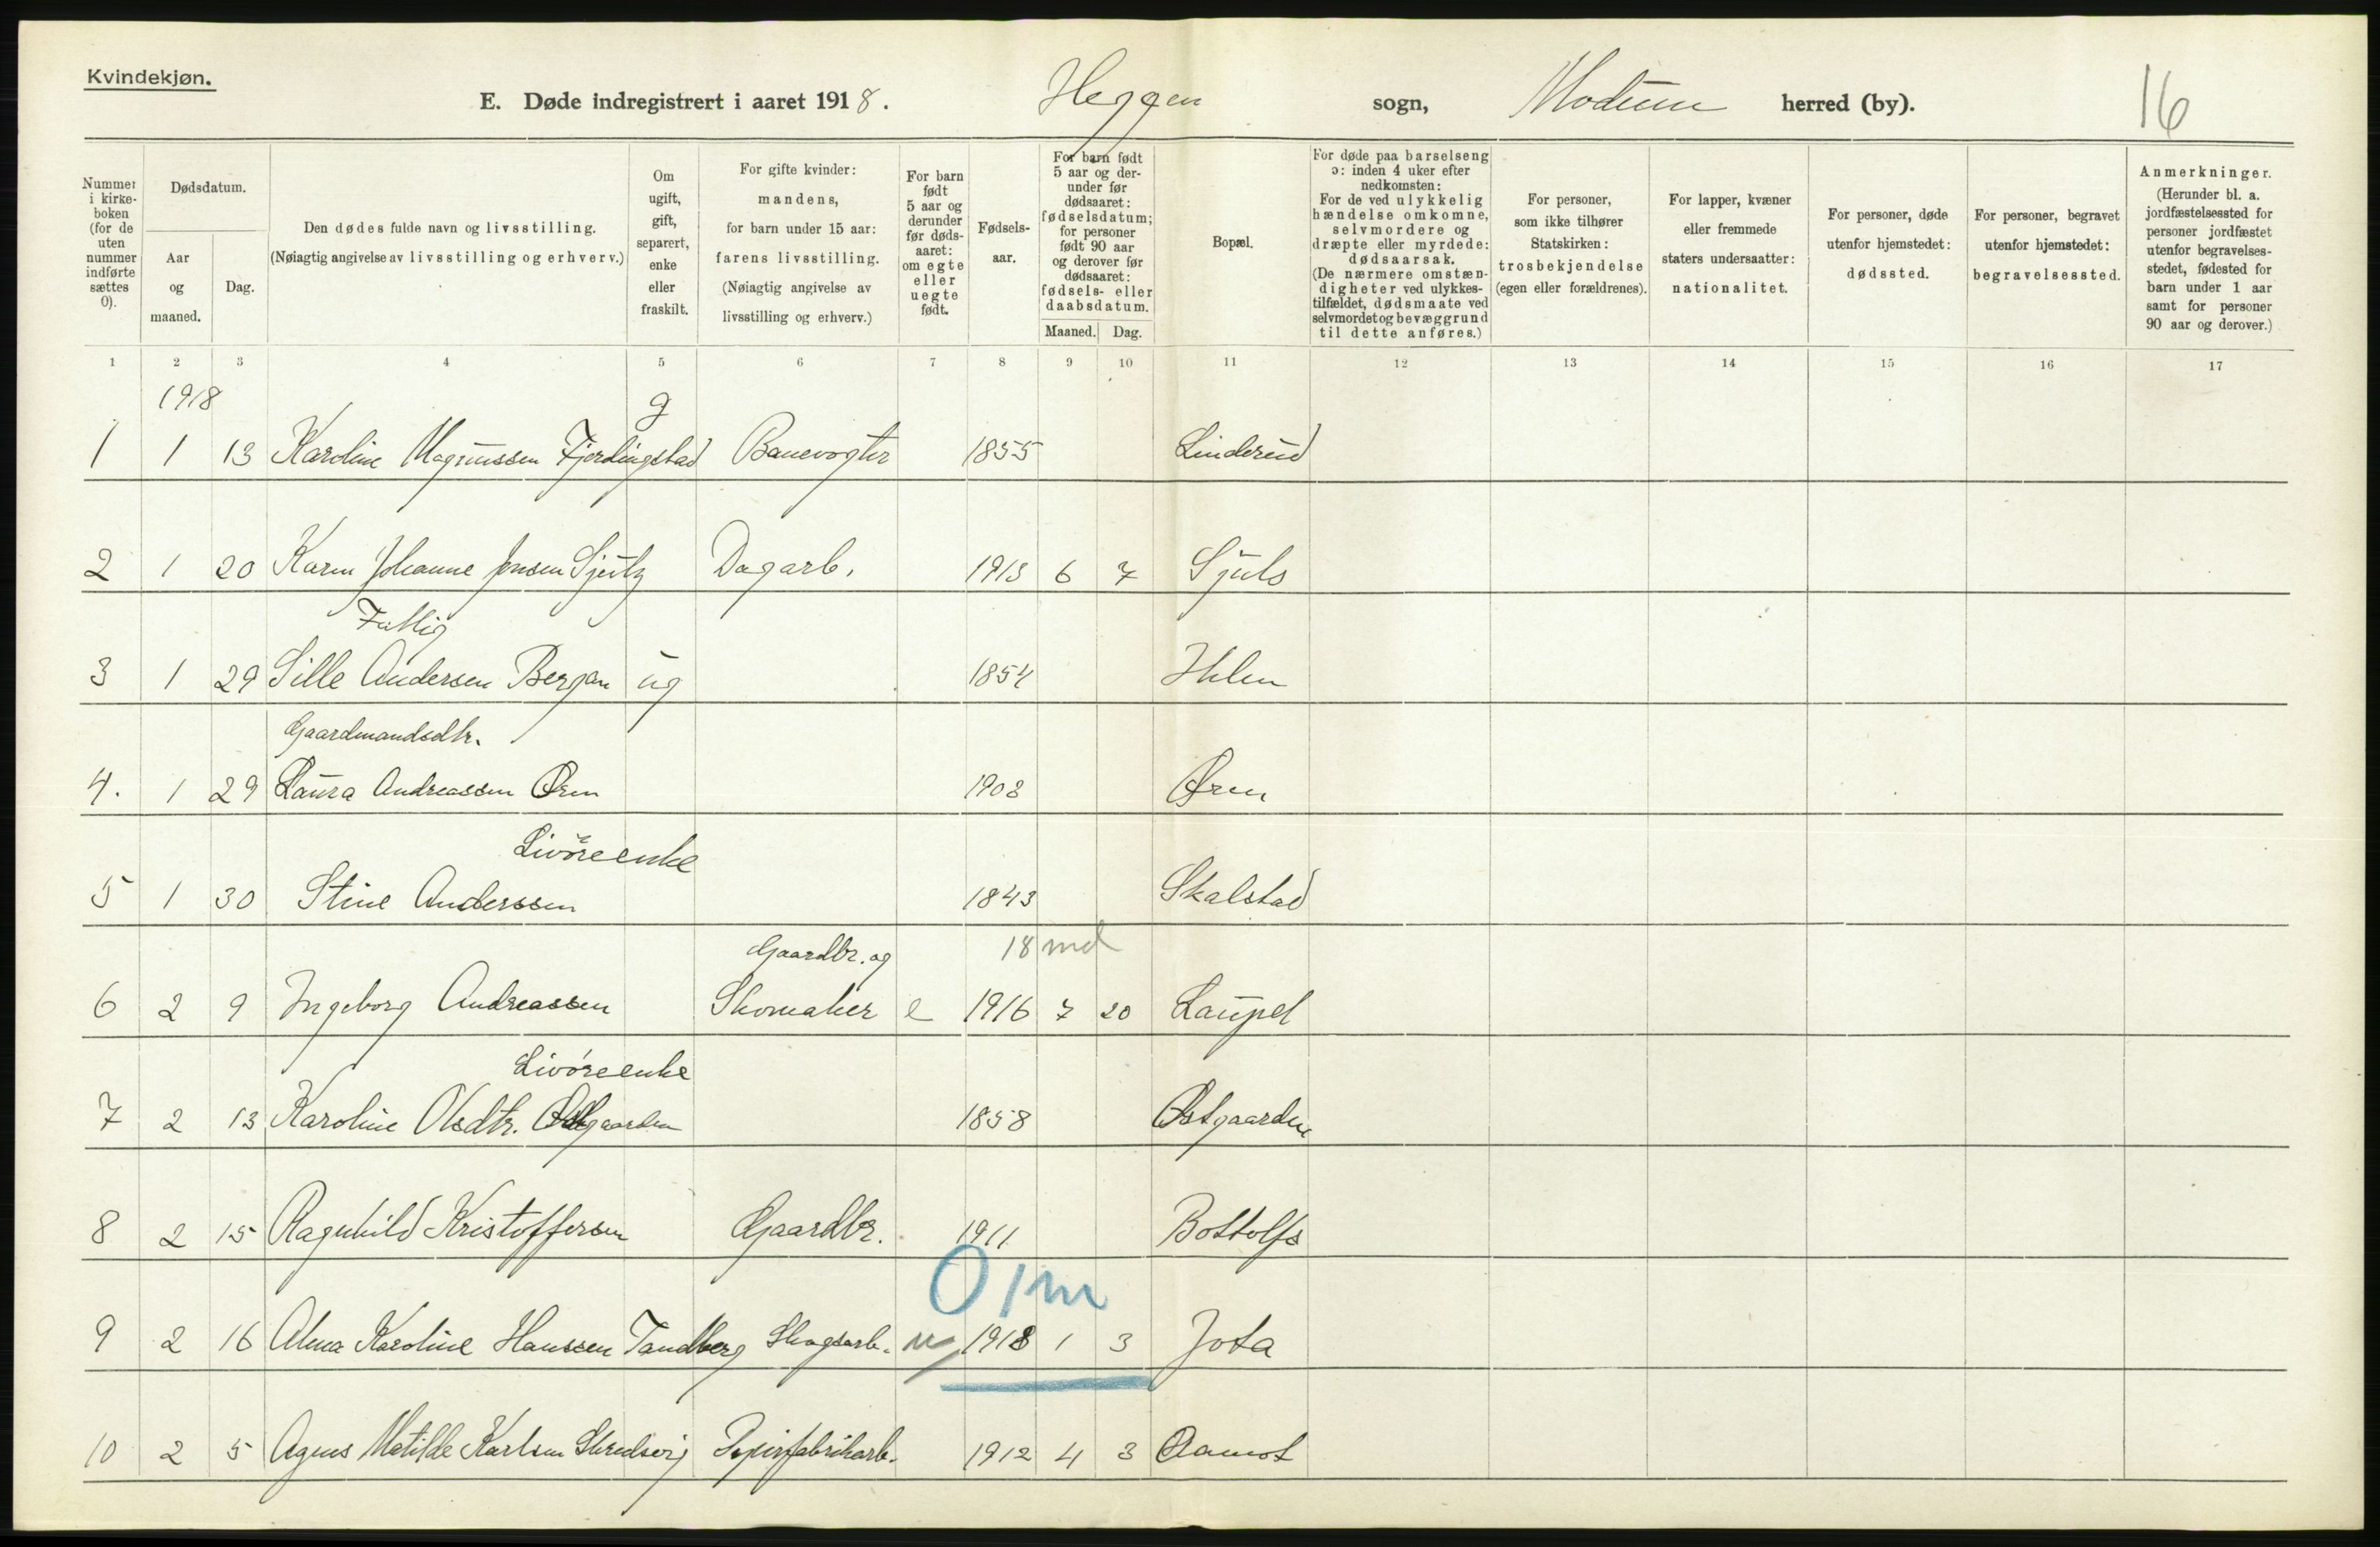 Kvindekjøn.
E. Døde indregistrert i aaret 1918. Heggen sogn, Modum herred (by). 16
Nummer i kirkeboken (for de uten nummer indførte sættes 0).
Dødsdatum.
Aar og maaned.
Dag.
Den dødes fulde navn og livsstilling.
(Nøiagtig angivelse av livsstilling og erhverv.)
Om ugift, gift, separert, enke eller fraskilt.
For gifte kvinder: mandens, for barn under 15 aar: farens livsstilling. (Nøiagtig angivelse av livsstilling og erhverv.)
For barn født 5 aar og derunder før dødsaaret: om egte eller uegte født.
Fødselsaar.
For barn født 5 aar og derunder før dødsaaret: fødselsdatum; for personer født 90 aar og derover før dødsaaret: fødsels- eller daabsdatum.
Maaned. Dag.
Bopæl.
For døde paa barselseng ɔ: inden 4 uker efter nedkomsten: For de ved ulykkelig hændelse omkomne, selvmordere og dræpte eller myrdede: dødsaarsak. (De nærmere omstændigheter ved ulykkestilfældet, dødsmaate ved selvmordet og bevæggrund til dette anføres.)
For personer, som ikke tilhører Statskirken: trosbekjendelse (egen eller forældrenes).
For lapper, kvæner eller fremmede staters undersaatter: nationalitet.
For personer, døde utenfor hjemstedet: dødssted.
For personer, begravet utenfor hjemstedet: begravelsessted.
Anmerkninger. (Herunder bl. a. jordfæstelsessted for personer jordfæstet utenfor begravelsesstedet, fødested for barn under 1 aar samt for personer 90 aar og derover.)
1 2 3 4 5 6 7 8 9 10 11 12 13 14 15 16 17
1918 g
1 1 13 Karoline Magnussen Fjerdingstad Banevogter 1855 Linderud
2 1 20 Karen Johanne Jensen Dagarb. 1913 6 7 Sjuls
Fattig
3 1 29 Sille Andersen Bergan ug 1854 Ihlen
Gaardmandsdtr.
4. 1 29 Laura Andreassen Øren 1903 Øren
Livøreenke
5 1 30 Stine Anderssen 1843 Skalstad
Gaardbr. og 18 md
6 2 9 Ingeborg Andreassen Skomaker e 1916 7 20 Laupel
Livøreenke
7 2 13 Karoline Olsdtr. Østgaarden 1858 Østgaarden
8 2 15 Ragnhild Kristoffersen Gaardbr. 1911 Bottolfs
0 1 m
9 2 16 Alma Karoline Hanssen Tandberg Skogsarb. u 1918 1 3 Jota
10 2 5 Agnes Matilde Karlsen Papirfabrikarb. 1912 4 3 Aamot